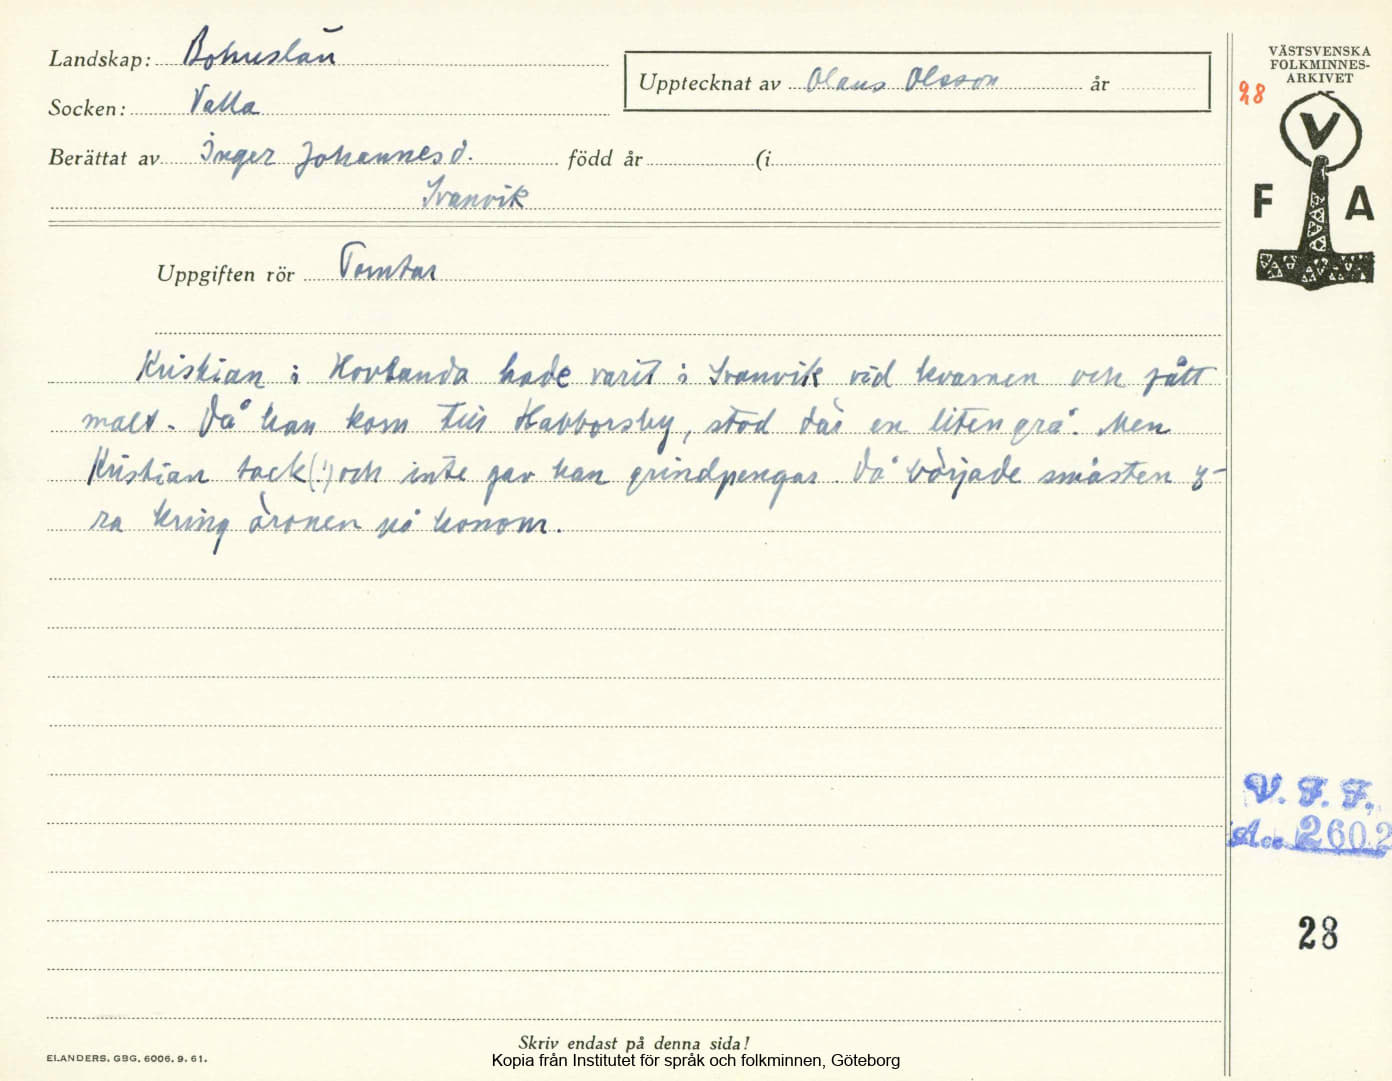 Landskap: Bohuslän
Upptecknat av Olaus Olsson år
Socken: Valla
Berättat av Inger Johannesd. född år (i
Svanvik
VÄSTSVENSKA
FOLKMINNES-
ARKIVET
28
V
F A
Uppgiften rör Tomtar
Kristian i Hovlanda hade varit i Svanvik vid kvarnen och fått
malt. Då han kom till Habborsby, stod där en liten grå. Men
Kristian tack(!) och inte gav han grindpengar. Då började småsten y-
ra kring öronen på honom.
V. F. F.
Acc 2602
28
Skriv endast på denna sida!
ELANDERS, GBG, 6006. 9. 61.
Kopia från Institutet för språk och folkminnen, Göteborg